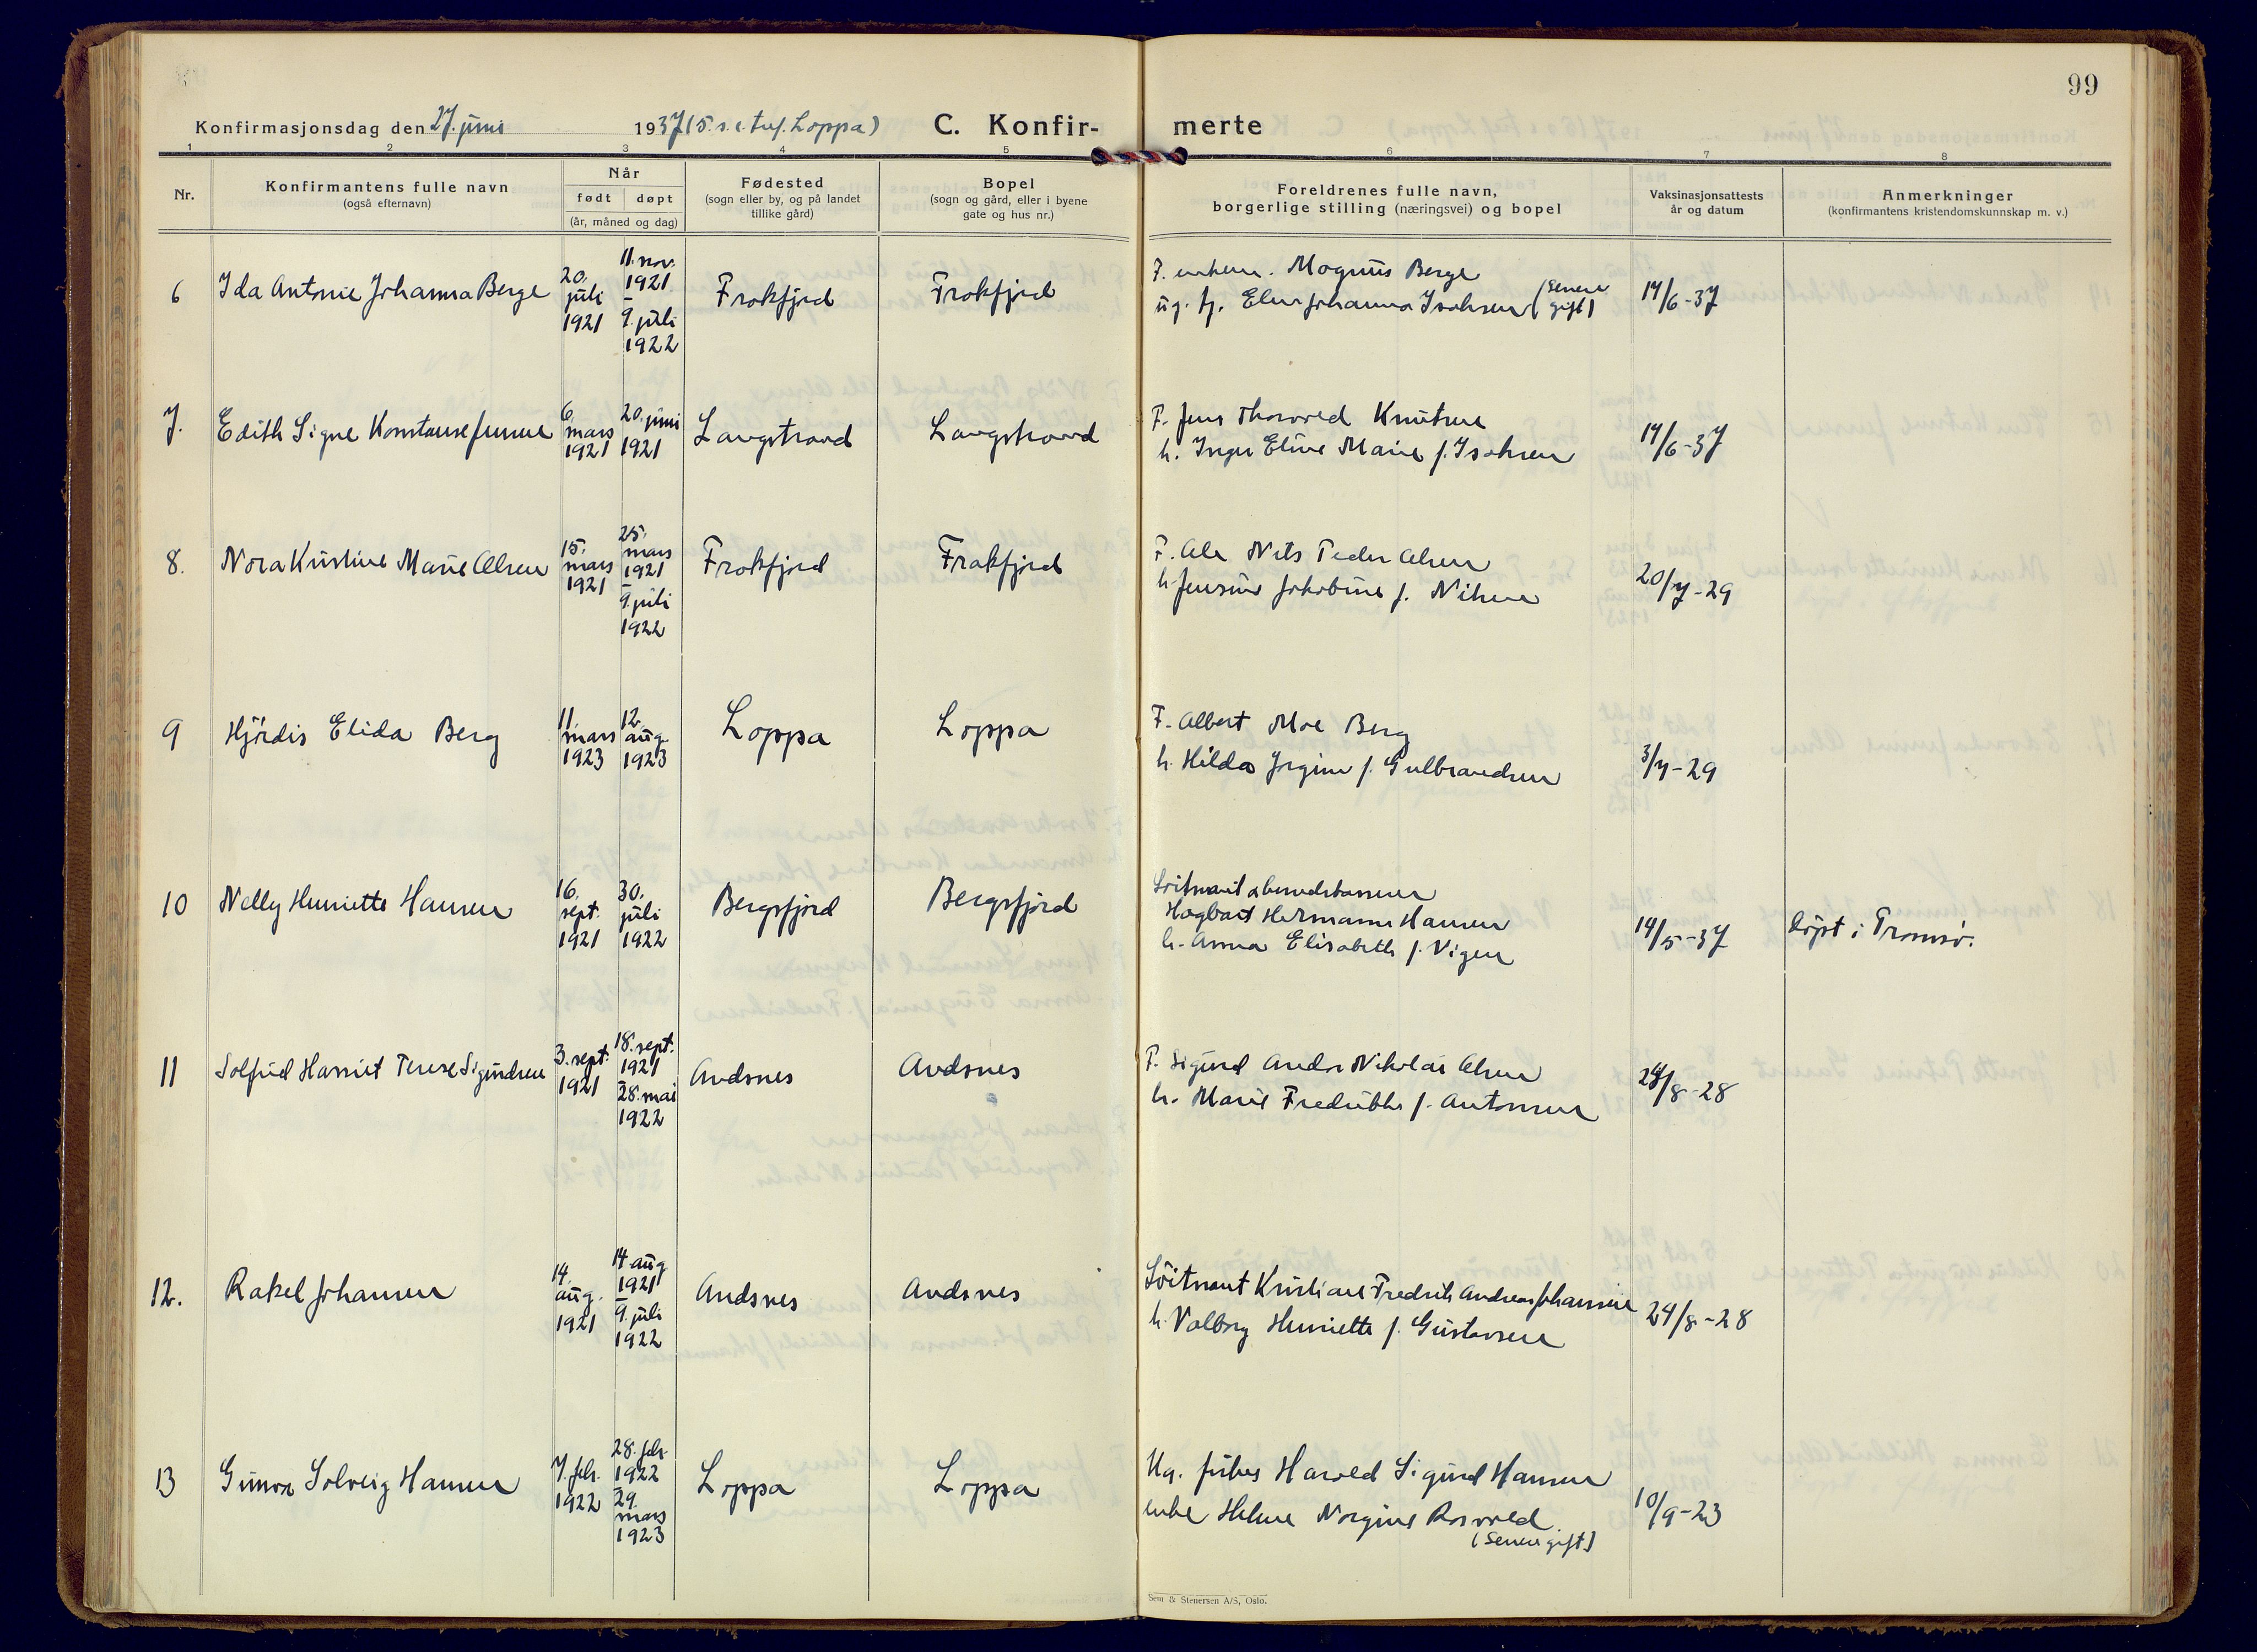 99
Konfirmasjonsdag den 27. juni 1937 (5. s. e. tref. Loppa) C. Konfir- merte
1 2 3 4 5 6 7 8
Nr. Konfirmantens fulle navn (også efternavn) Når født døpt (år, måned og dag) Fødested (sogn eller by, og på landet tillike gård) Bopel (sogn og gård, eller i byene gate og hus nr.) Foreldrenes fulle navn, borgerlige stilling (næringsvei) og bopel Vaksinasjonsattests år og datum Anmerkninger (konfirmantens kristendomskunnskap m. v.)
6 Ida Antonie Johanna Berge 20. juli 1921 11. nov. 1921 – 9. juli 1922 Frakfjord Frakfjord F. enkem. Magnus Berge
ug. fj. Elen Johanna Isaksen (senere gift) 17/6-37
7. Edith Signe Konstanse Jensen 6. mars 1921 20. juni 1921 Langstrand Langstrand F. Jens Thorvald Knutsen
h. Inger Eline Marie f. Isaksen 17/6-37
8. Nora Kristine Marie Olsen 15. mars 1921 25. mars 1921 – 9. juli 1922 Frakfjord Frakfjord F. Ole Nils Peder Olsen
h. Jensine Jakobine f. Nilsen 20/7-29
9 Hjördis Elida Berg 11. mars 1923 12. aug. 1923 Loppa Loppa F. Albert Moe Berg
h. Hilda Jrgine f. Gulbrandsen 3/7-29
10 Nelly Henriette Hansen 16. sept. 1921 30. juli 1922 Bergsfjord Bergsfjord Löitnant
Hagbart Hermann Hansen
h. Anna Elisabeth f. Vigen 14/5-37 Döpt i Tromsö.
11 Solfrid Harriet Terese Sigurdsen 3. sept. 1921 18. sept. 1921 – 28. mai 1922 Andsnes Andsnes F. Sigurd Andor Nikolai Olsen
h. Marie Fredrikke f. Antonsen 24/8-28
12. Rakel Johansen 14 aug. 1921 14 aug 1921 – 9. juli 1922 Andsnes Andsnes Löitnant Kristian Fredrik Andreas Johansen
h. Valborg Henriette f. Gustavsen 24/8-28
13 Gunvor Solveig Hansen 7. feb. 1922 28. feb. 1922 – 29. mars 1923 Loppa Loppa Ug. fisker Harald Sigurd Hansen
enke Helene Norgine Rosvold
(senere gift) 10/9-23
Sem & Stenersen A/S, Oslo.